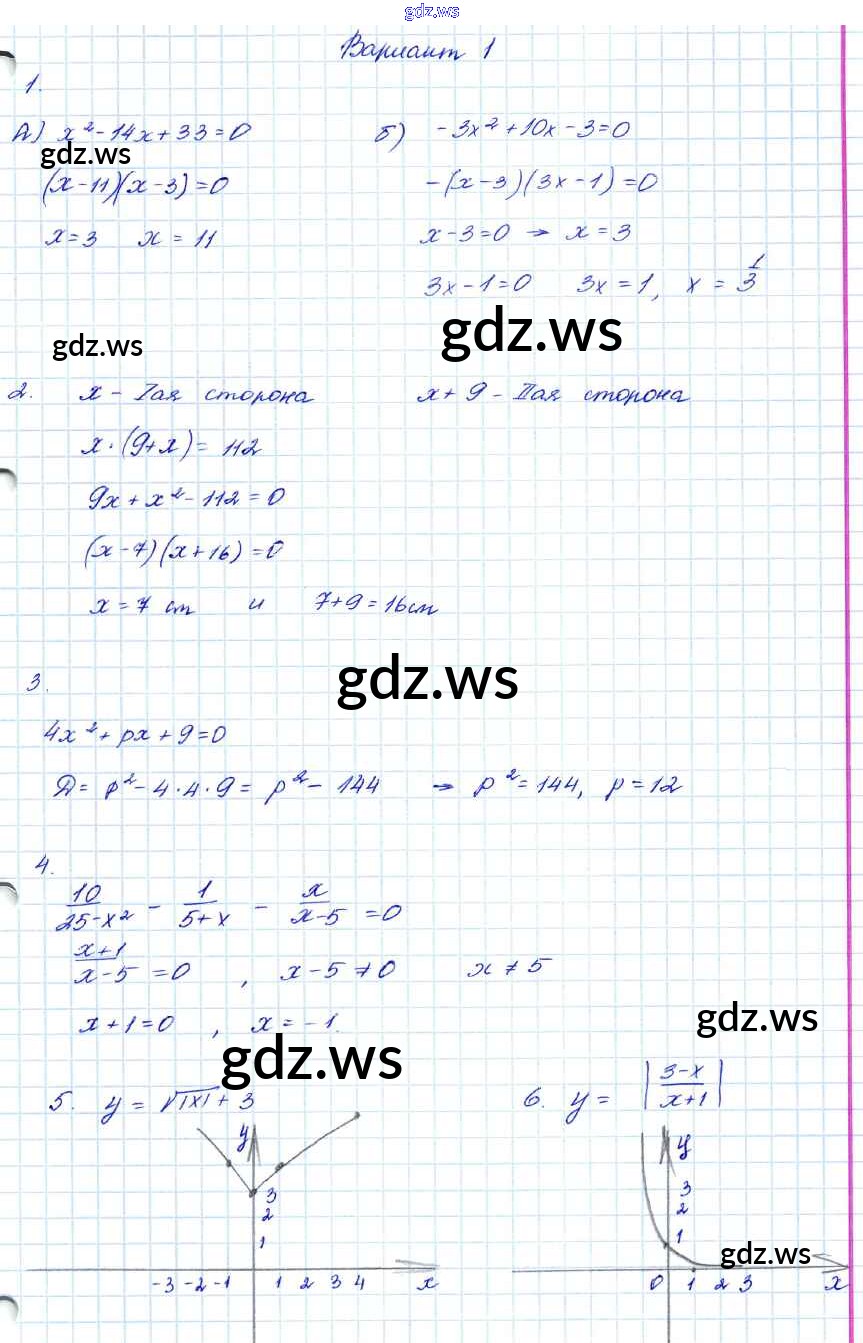 gdz.ws
Вариант 1
1.
А) x² - 14x + 33 = 0
б) -3x² + 10x - 3 = 0
gdz.ws
(x - 11)(x - 3) = 0
-(x - 3)(3x - 1) = 0
x = 3 x = 11
x - 3 = 0 → x = 3
3x - 1 = 0 3x = 1, x = 1/3
gdz.ws
gdz.ws
2. x - Iая сторона x + 9 - IIая сторона
x · (9 + x) = 112
9x + x² - 112 = 0
(x - 7)(x + 16) = 0
x = 7 см и 7 + 9 = 16 см
gdz.ws
3.
4x² + px + 9 = 0
Д = p² - 4 · 4 · 9 = p² - 144 → p² = 144, p = 12
4.
10/(25 - x²) - 1/(5 + x) - x/(x - 5) = 0
(x + 1)/(x - 5) = 0 , x - 5 ≠ 0 x ≠ 5
x + 1 = 0 , x = -1.
gdz.ws
gdz.ws
5. y = √|x| + 3
6. y = |(3 - x)/(x + 1)|
y
3
2
1
-3 -2 -1 1 2 3 4 x
y
3
2
1
gdz.ws
0 1 2 3 x